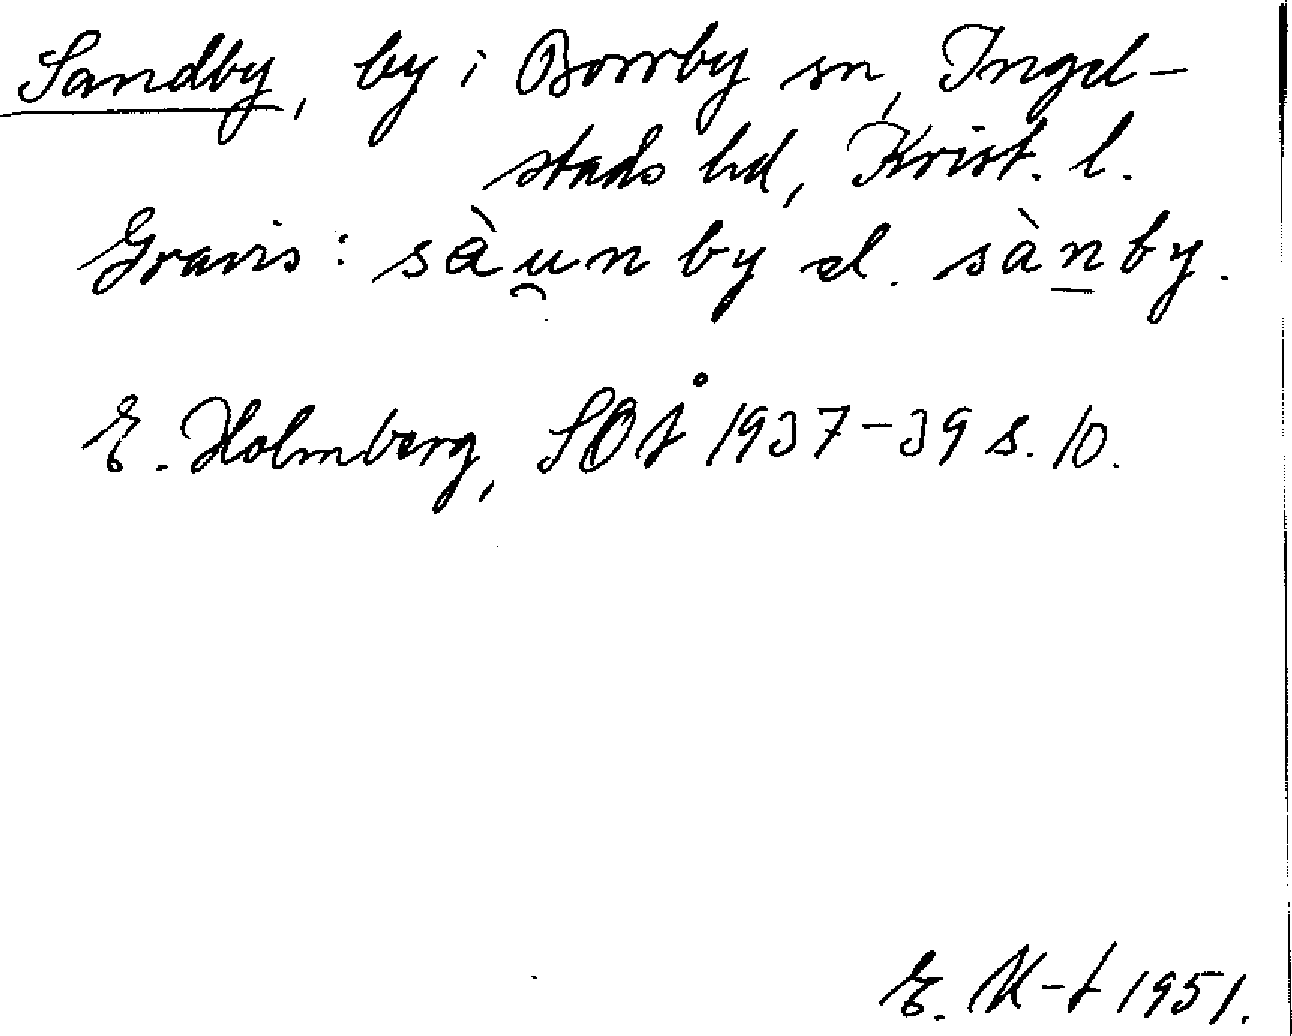 Sandby, by i Borrby sn, Ingel-
stads hd, Krist. l.
Gravis: sàu̯nby el. sàn̲by.
E. Holmberg, SOÅ 1937-39 s. 10.
E. K-t 1951.